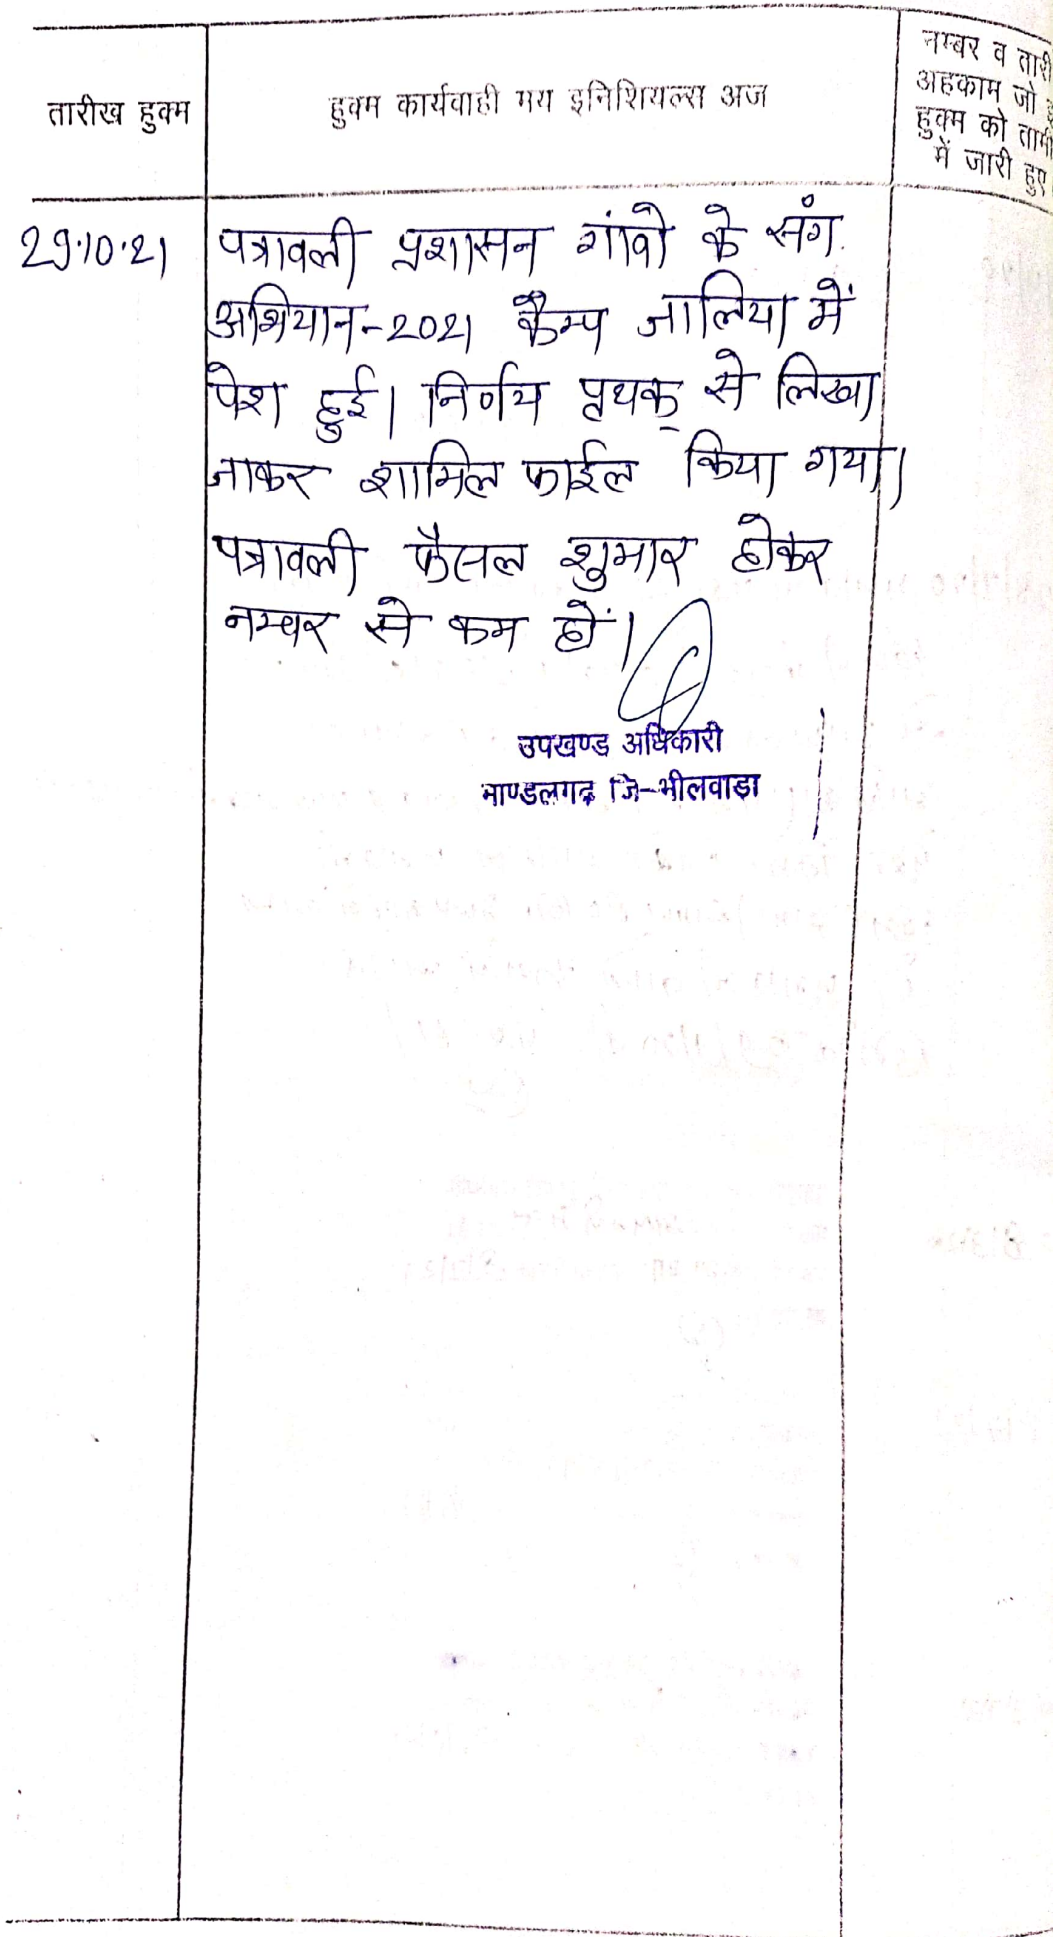 तारीख हुक्म
हुक्म कार्यवाही मय इनिशियल्स अज
नम्बर व तारी
अहकाम जो इ
हुक्म को तामी
में जारी हुए
29.10.21
पत्रावली प्रशासन गांवो के संग
अभियान-2021 कैम्प जालिया में
पेश हुई। निर्णय पृथक् से लिखा
जाकर शामिल फाईल किया गया।
पत्रावली फैसल शुमार होकर
नम्बर से कम हों।
उपखण्ड अधिकारी
माण्डलगढ़ जि-भीलवाड़ा